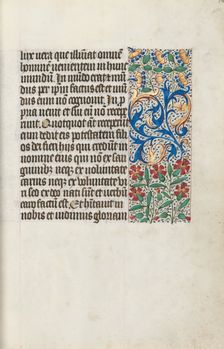 lux vera que illuminat omnem
hominem venientem in hunc
mundum In mundo erat et mun
dus per ipm factus est et mun
dus eum non cognovit In p
pria venit et sui eum non recepe
runt Quotquot autem receperunt
eum dedit eis potestatem fili
os dei fieri hiis qui credunt in
nomine eius qui non ex san
guinibz neqz ex voluntate
carnis neqz ex voluntate vi
ri sed ex deo nati sunt et verbum
caro factum est Et habitavit in
nobis et vidimus gloriam